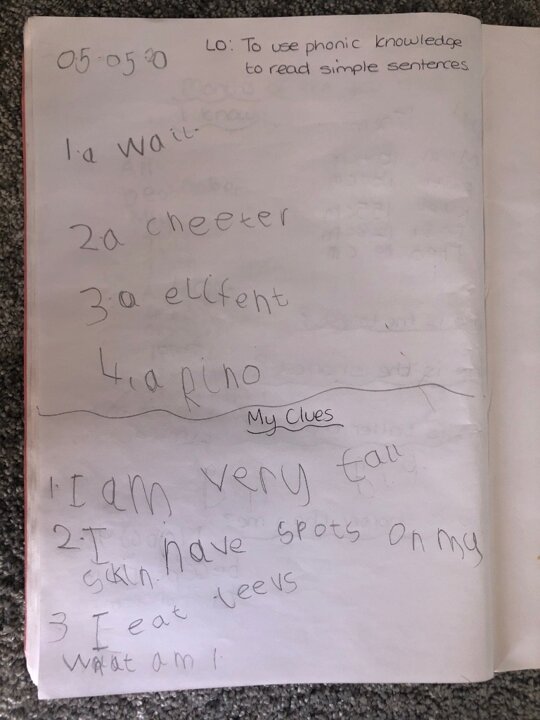 05.05.20
LO: To use phonic knowledge
to read simple sentences
1.a wail
2.a cheeter
3.a elifent
4.a rino
My Clues
1.I am very tall
2.I have spots on my
sckin
3 I eat leevs
What am I.